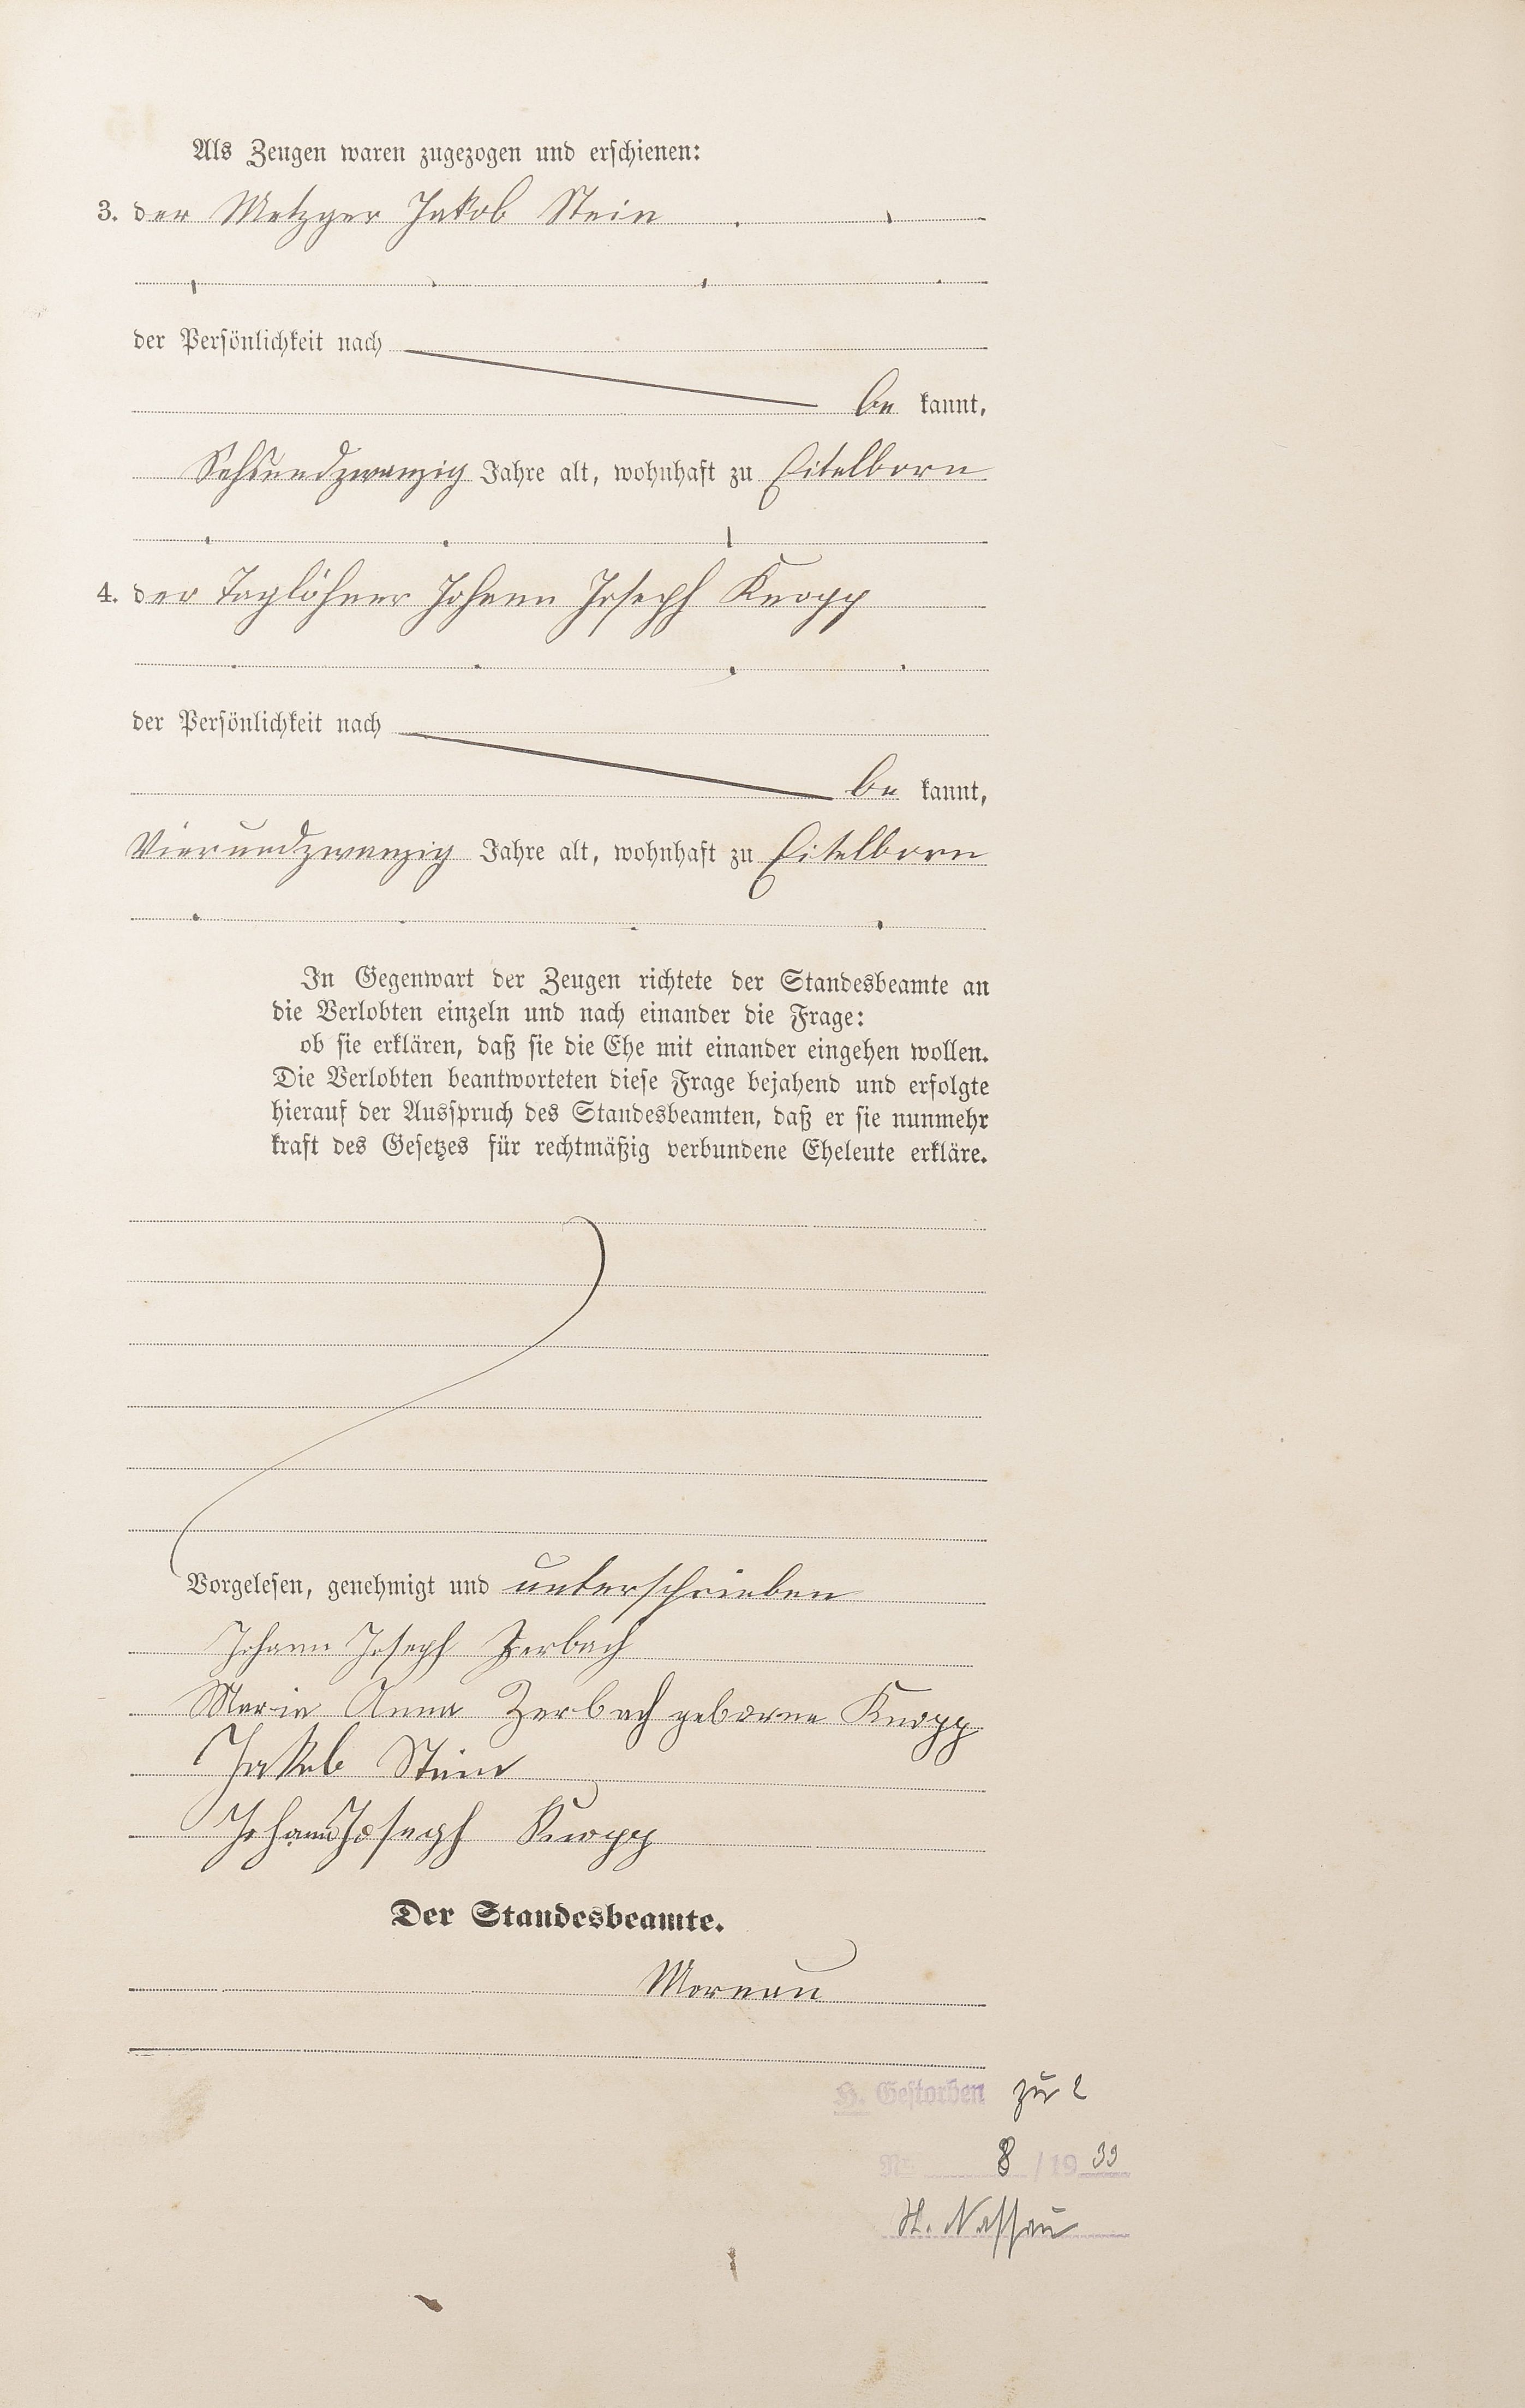 Als Zeugen waren zugezogen und erschienen:
3. der Metzger Jakob Stein
der Persönlichkeit nach
be kannt,
Sechsundzwanzig Jahre alt, wohnhaft zu Eitelborn
4. der Taglöhner Johann Joseph Knopp
der Persönlichkeit nach
be kannt,
Vierundzwanzig Jahre alt, wohnhaft zu Eitelborn
In Gegenwart der Zeugen richtete der Standesbeamte an
die Verlobten einzeln und nach einander die Frage:
ob sie erklären, daß sie die Ehe mit einander eingehen wollen.
Die Verlobten beantworteten diese Frage bejahend und erfolgte
hierauf der Ausspruch des Standesbeamten, daß er sie nunmehr
kraft des Gesetzes für rechtmäßig verbundene Eheleute erkläre.
Vorgelesen, genehmigt und unterschrieben
Johann Joseph Zerbach
Maria Anna Zerbach geborne Knopp
Jakob Stein
Johann Joseph Knopp
Der Standesbeamte.
Mornau
H. Gestorben zu 2
No 8 / 19 39
St. Nassau